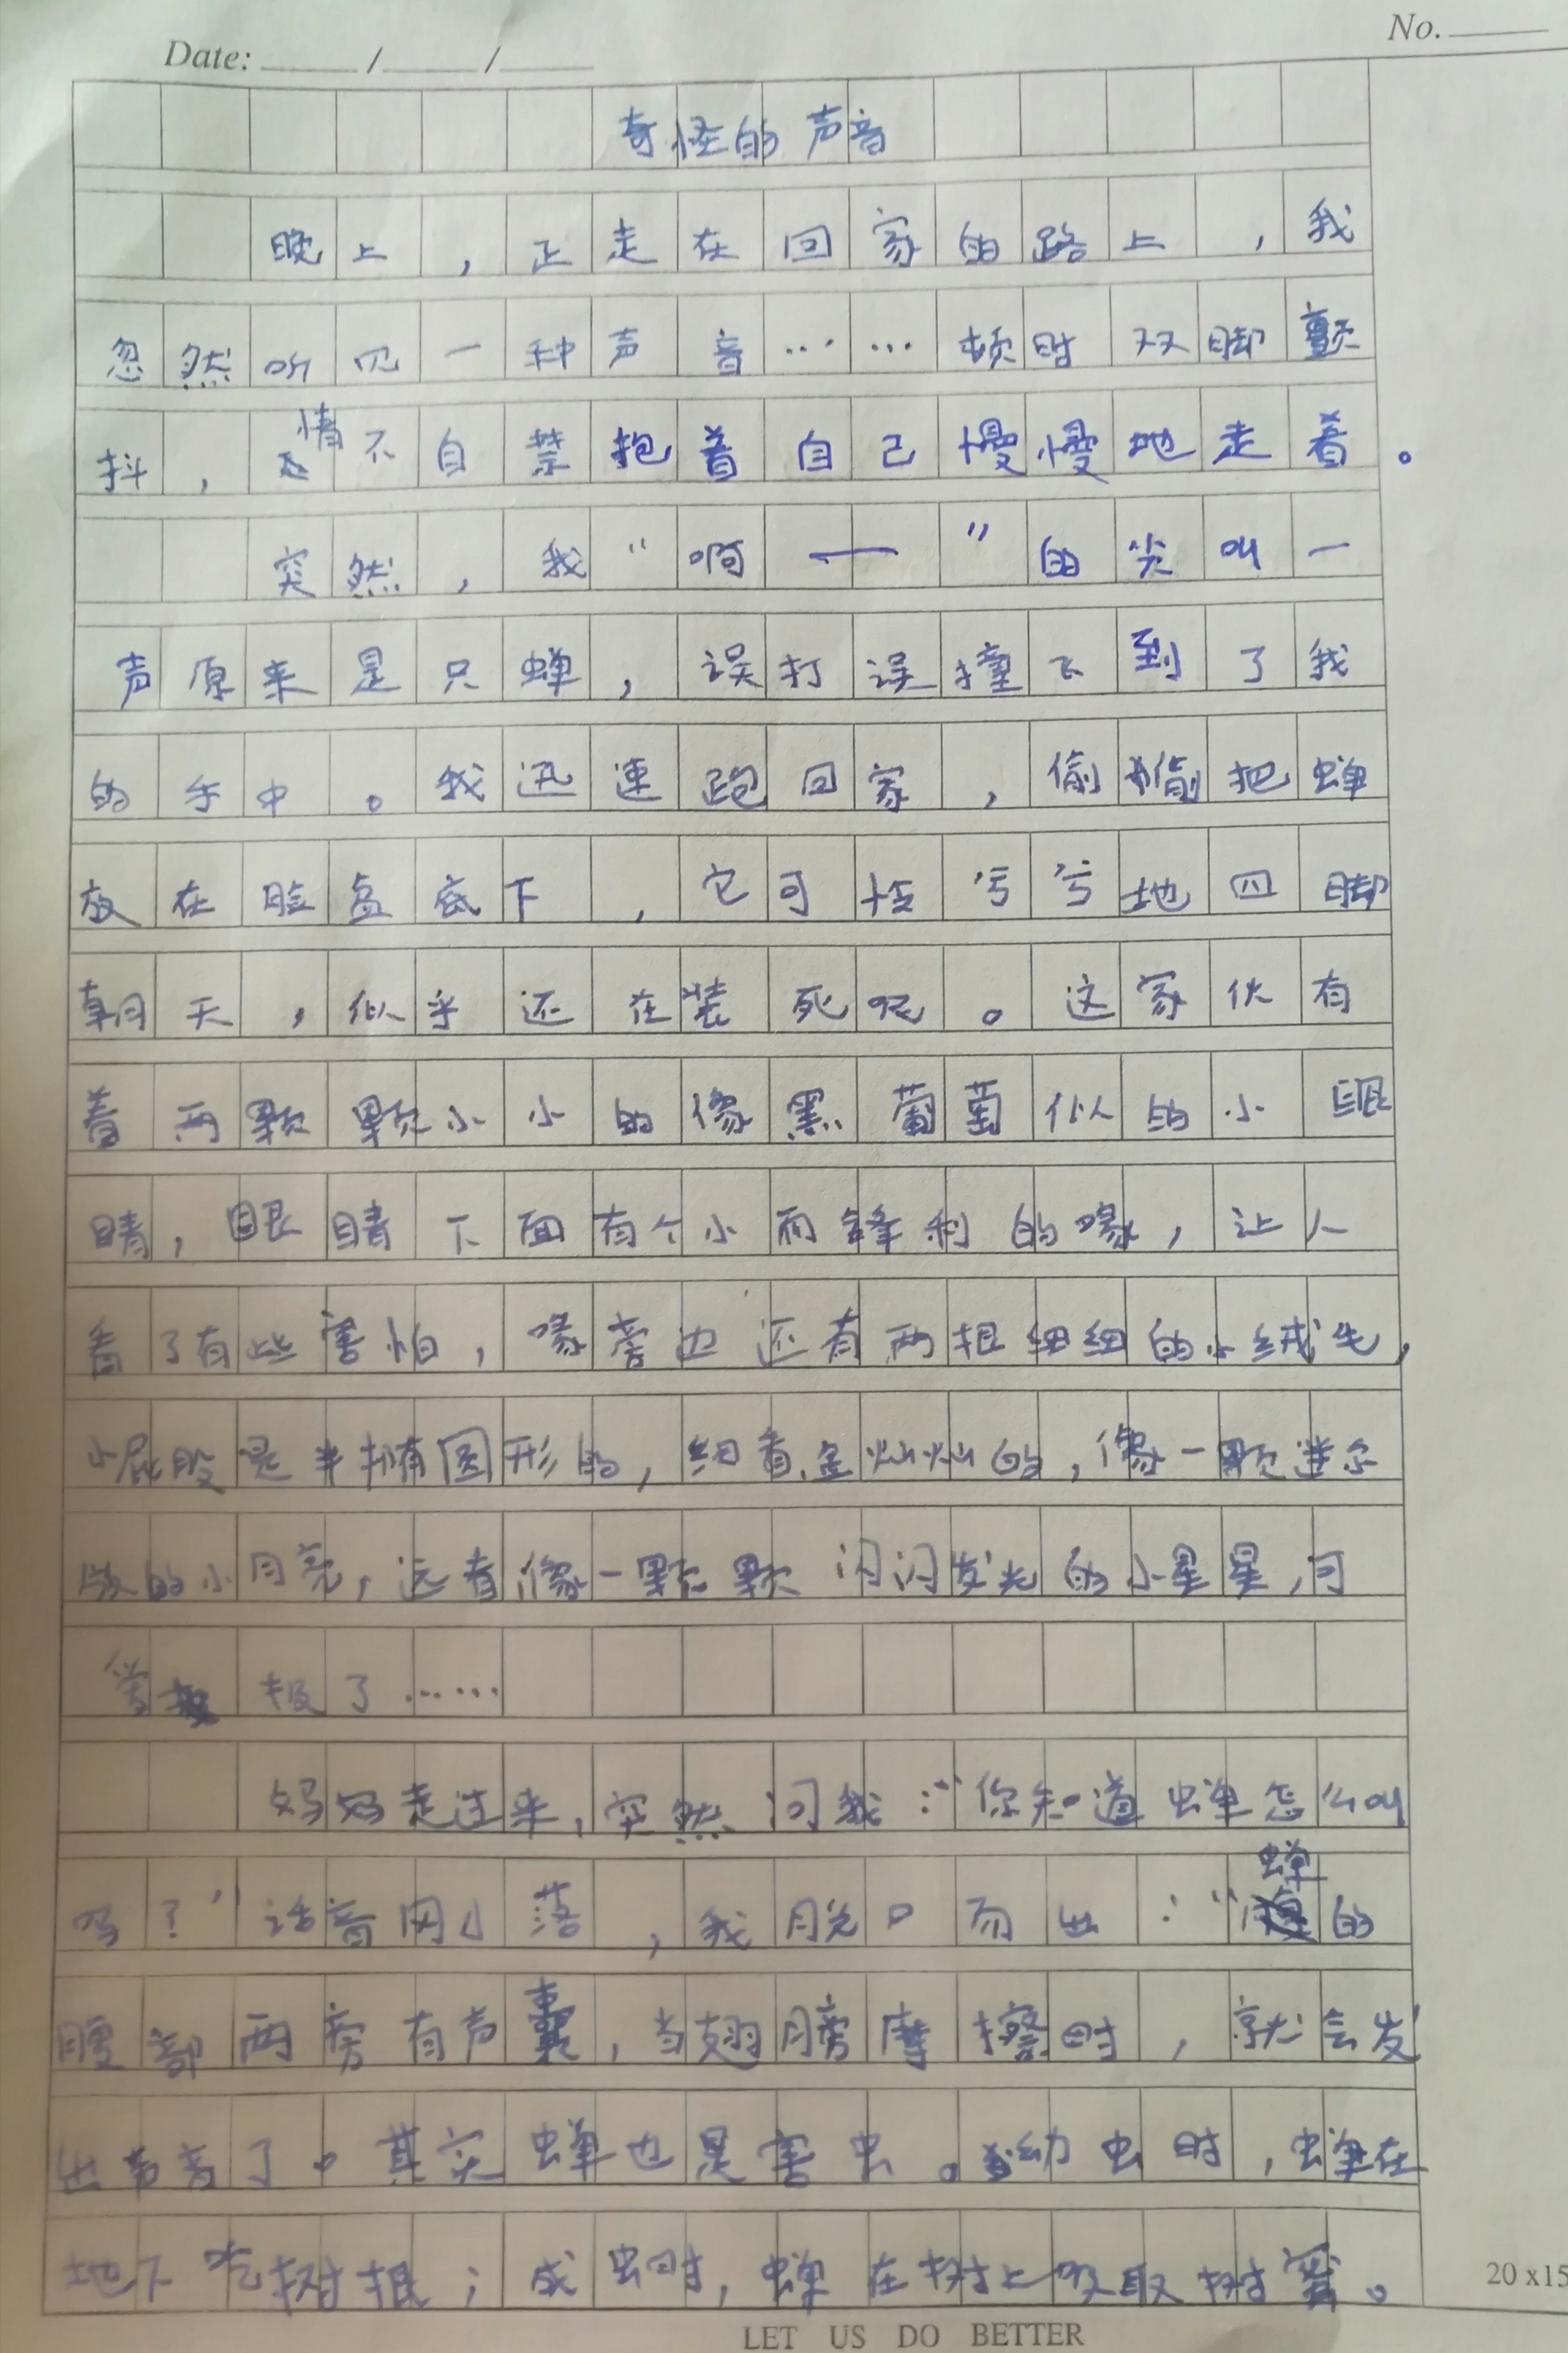 No.
Date: / /
奇怪的声音
晚上，正走在回家的路上，我
忽然听见一种声音……顿时双脚颤
抖，情不自禁抱着自己慢慢地走着。
突然，我“啊——”的尖叫一
声原来是只蝉，误打误撞飞到了我
的手中。我迅速跑回家，偷偷把蝉
放在脸盆底下，它可怜兮兮地四脚
朝天，似乎还在装死呢。这家伙有
着两颗颗小小的像黑葡萄似的小眼
睛，眼睛下面有个小而锋利的喙，让人
看了有些害怕，喙旁边还有两根细细的小绒毛，
小屁股是半椭圆形的，细看，金灿灿的，像一颗迷你
版的小月亮，远看像一颗颗闪闪发光的小星星，可
爱极了……
妈妈走过来，突然问我：“你知道蝉怎么叫
吗？”话音刚落，我脱口而出：“蝉的
腹部两旁有声囊，当翅膀摩擦时，就会发
出声音了。其实蝉也是害虫。幼虫时，蝉在
地下吃树根；成虫时，蝉在树上吸取树蜜。
20 x15
LET US DO BETTER